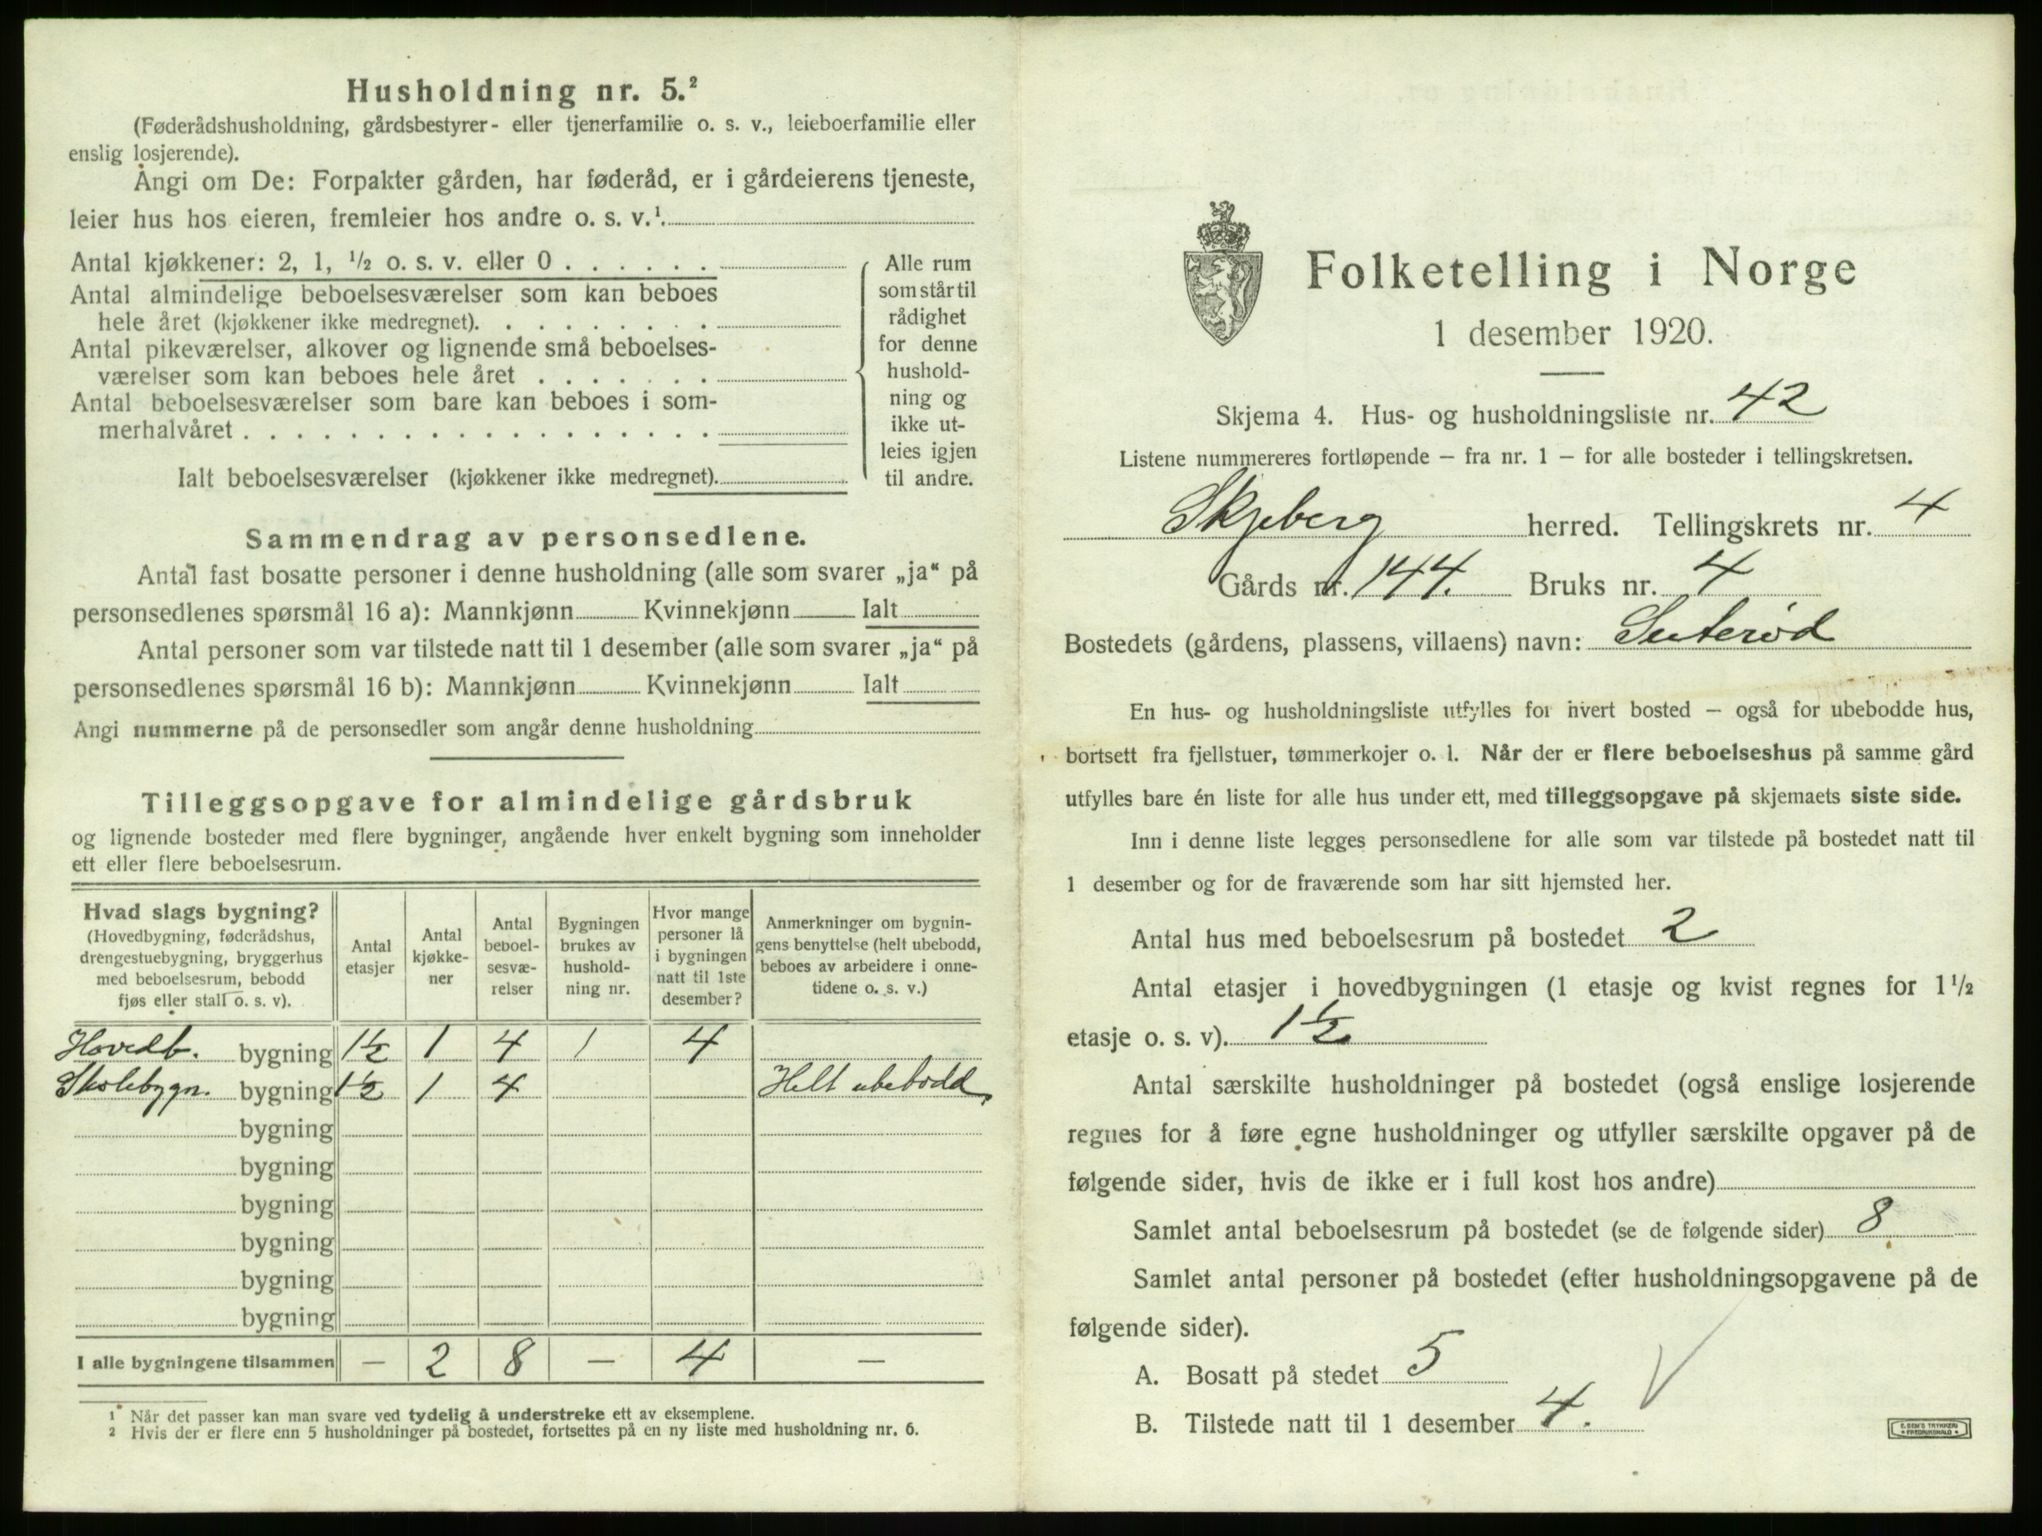 Husholdning nr. 5.²
(Føderådshusholdning, gårdsbestyrer- eller tjenerfamilie o. s. v., leieboerfamilie eller
enslig losjerende).
Angi om De: Forpakter gården, har føderåd, er i gårdeierens tjeneste,
leier hus hos eieren, fremleier hos andre o. s. v.¹
Antal kjøkkener: 2, 1, ½ o. s. v. eller 0 . . . . . .
Antal almindelige beboelsesværelser som kan beboes
hele året (kjøkkener ikke medregnet). . . . . . . . .
Antal pikeværelser, alkover og lignende små beboelses-
værelser som kan beboes hele året . . . . . . .
Antal beboelsesværelser som bare kan beboes i som-
merhalvåret . . . . . . . . . . . . . . . . . .
Ialt beboelsesværelser (kjøkkener ikke medregnet).
Alle rum
som står til
rådighet
for denne
hushold-
ning og
ikke ut-
leies igjen
til andre.
Sammendrag av personsedlene.
Antal fast bosatte personer i denne husholdning (alle som svarer „ja“ på
personsedlenes spørsmål 16 a): Mannkjønn Kvinnekjønn Ialt
Antal personer som var tilstede natt til 1 desember (alle som svarer „ja“ på
personsedlenes spørsmål 16 b): Mannkjønn Kvinnekjønn Ialt
Angi nummerne på de personsedler som angår denne husholdning
Tilleggsopgave for almindelige gårdsbruk
og lignende bosteder med flere bygninger, angående hver enkelt bygning som inneholder
ett eller flere beboelsesrum.
Hvad slags bygning?
(Hovedbygning, føderådshus,
drengestuebygning, bryggerhus
med beboelsesrum, bebodd
fjøs eller stall o. s. v).
Antal
etasjer
Antal
kjøkke-
ner
Antal
beboel-
sesvæ-
relser
Bygningen
brukes av
hushold-
ning nr.
Hvor mange
personer lå
i bygningen
natt til 1ste
desember?
Anmerkninger om bygnin-
gens benyttelse (helt ubebodd,
beboes av arbeidere i onne-
tidene o. s. v.)
Hovedb. bygning 1½ 1 4 1 4
Skolebygn. bygning 1½ 1 4 Helt ubebodd,
bygning
bygning
bygning
bygning
bygning
bygning
I alle bygningene tilsammen — 2 8 — 4 —
¹ Når det passer kan man svare ved tydelig å understreke ett av eksemplene.
² Hvis der er flere enn 5 husholdninger på bostedet, fortsettes på en ny liste med husholdning nr. 6.
Folketelling i Norge
1 desember 1920.
Skjema 4. Hus- og husholdningsliste nr. 42
Listene nummereres fortløpende — fra nr. 1 — for alle bosteder i tellingskretsen.
Skjeberg herred. Tellingskrets nr. 4
Gårds nr. 144. Bruks nr. 4
Bostedets (gårdens, plassens, villaens) navn: Suterød
En hus- og husholdningsliste utfylles for hvert bosted — også for ubebodde hus,
bortsett fra fjellstuer, tømmerkojer o. l. Når der er flere beboelseshus på samme gård
utfylles bare én liste for alle hus under ett, med tilleggsopgave på skjemaets siste side.
Inn i denne liste legges personsedlene for alle som var tilstede på bostedet natt til
1 desember og for de fraværende som har sitt hjemsted her.
Antal hus med beboelsesrum på bostedet 2
Antal etasjer i hovedbygningen (1 etasje og kvist regnes for 1½
etasje o. s. v). 1½
Antal særskilte husholdninger på bostedet (også enslige losjerende
regnes for å føre egne husholdninger og utfyller særskilte opgaver på de
følgende sider, hvis de ikke er i full kost hos andre)
Samlet antal beboelsesrum på bostedet (se de følgende sider) 8
Samlet antal personer på bostedet (efter husholdningsopgavene på de
følgende sider).
A. Bosatt på stedet 5
B. Tilstede natt til 1 desember 4.